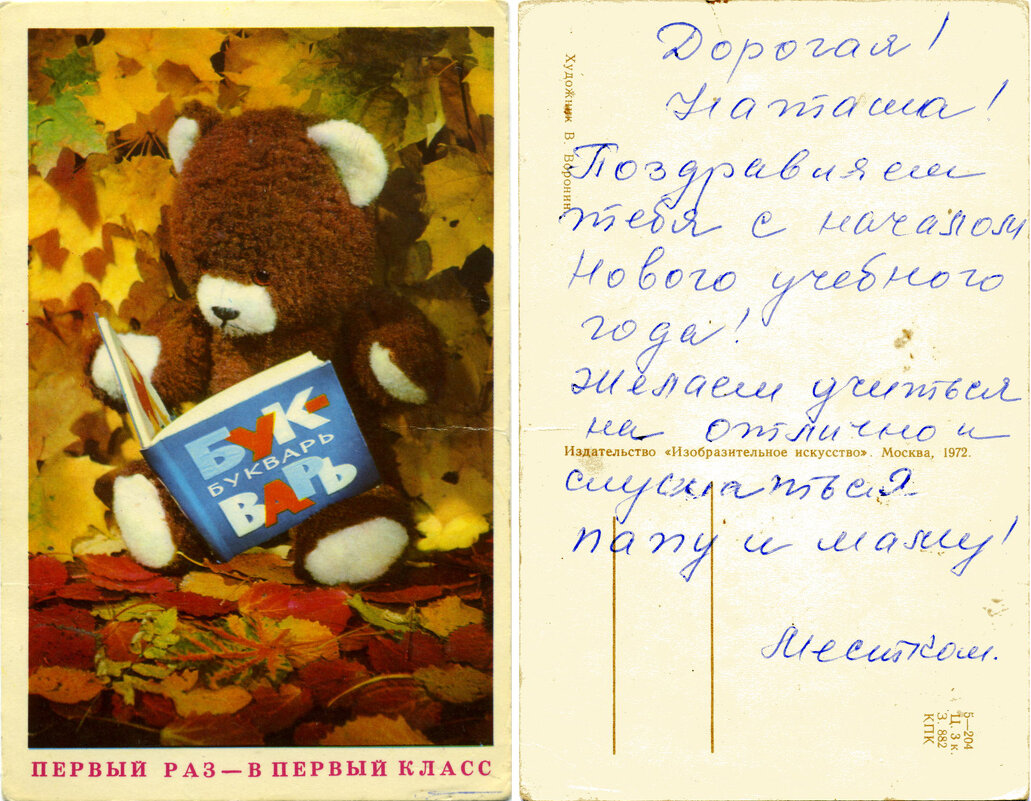 БУК-
БУКВАРЬ
ВАРЬ
ПЕРВЫЙ РАЗ — В ПЕРВЫЙ КЛАСС
Дорогая!
Наташа!
Поздравляем
тебя с началом
Нового учебного
года!
Желаем учиться
на отлично и
слушаться
папу и маму!
Местком.
Художник В. Воронин
Издательство «Изобразительное искусство». Москва, 1972.
5—204
Ц. 3 к.
З. 882
КПК